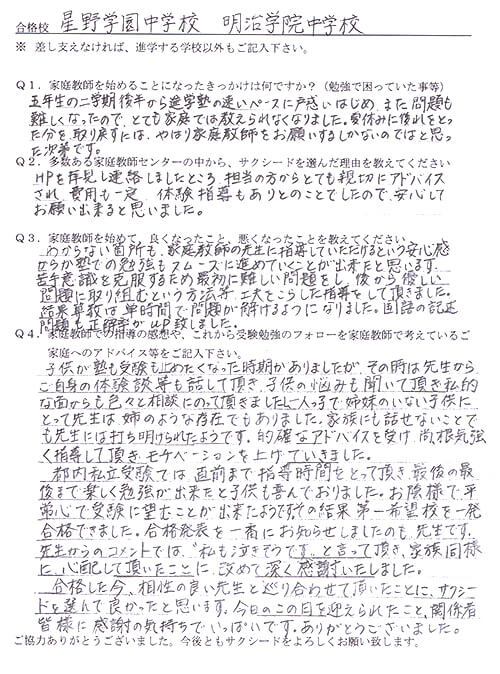 合格校 星野学園中学校 明治学院中学校
※ 差し支えなければ、進学する学校以外もご記入下さい。
Q1．家庭教師を始めることになったきっかけは何ですか？（勉強で困っていた事等）
五年生の二学期後半から進学塾の速いペースに戸惑いはじめ、また問題も
難しくなったので、とても家庭では教えられなくなりました。夏休みに後れをとっ
た分を取り戻すには、やはり家庭教師をお願いするしかないのではと思っ
た次第です。
Q2．多数ある家庭教師センターの中から、サクシードを選んだ理由を教えてください
HPを拝見し連絡しましたところ、担当の方からとても親切にアドバイス
され、費用も一定、体験指導もありとのことでしたので、安心して
お願い出来ると思いました。
Q3．家庭教師を始めて、良くなったこと、悪くなったことを教えてください
わからない箇所も、家庭教師の先生に指導していただけるという安心感
からか塾での勉強もスムーズに進めていくことが出来たと思います。
苦手意識を克服するため最初に難しい問題をし、後から優しい
問題に取り組むという方法等、工夫をこらした指導をして頂きました。
結果算数は単時間で問題が解けるようになりました。国語の記述
問題も正解率がUP致しました。
Q4．家庭教師での指導の感想や、これから受験勉強のフォローを家庭教師で考えているご
家庭へのアドバイス等をご記入下さい。
子供が塾も受験も止めたくなった時期がありましたが、その時は先生から
ご自身の体験談等も話して頂き、子供の悩みも聞いて頂き私的
な面からも色々と相談にのって頂きました。一人っ子で姉妹のいない子供に
とって先生は姉のような存在でもありました。家族にも話せないことで
も先生には打ち明けられたようです。的確なアドバイスを受け、尚根気強
く指導して頂き、モチベーションを上げていきました。
都内私立受験では、直前まで指導時間をとって頂き、最後の最
後まで楽しく勉強が出来たと子供も喜んでおりました。お陰様で平
常心で受験に望むことが出来たようですその結果第一希望校を一発
合格できました。合格発表を一番にお知らせしましたのも、先生です。
先生からのコメントでは、"私も泣きそうです。"と言って頂き、家族同様
に、心配して頂いたことに、改めて深く感謝いたしました。
合格した今、相性の良い先生と巡り合わせて頂いたことに、サクシー
ドを選んで良かったと思います。今日のこの日を迎えられたこと、関係者
皆様に感謝の気持ちでいっぱいです。ありがとうございました。
ご協力ありがとうございました。今後ともサクシードをよろしくお願い致します。